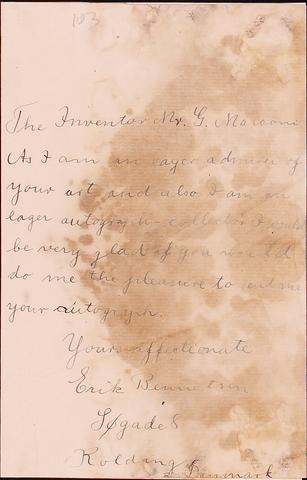 103
The Inventor Mr. G. Marconi
As I am an eager admirer of
your art and also I am an
eager autograph-collector I would
be very glad if you would
do me the pleasure to send me
your autograph.
Yours affectionate
Erik
Søgade 8
Kolding, Danmark